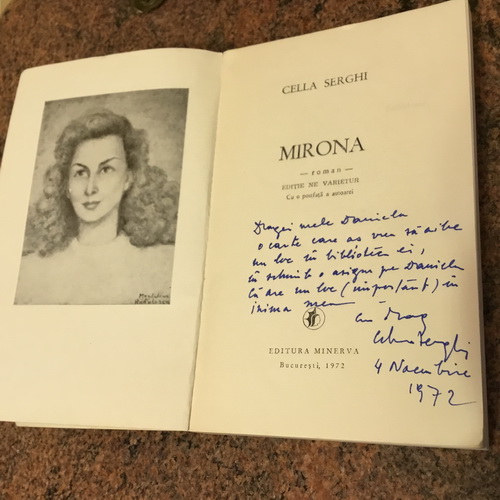 CELLA SERGHI
MIRONA
— roman —
EDIȚIE NE VARIETUR
Cu o postfață a autoarei
Dragei mele Daniela
o carte care aș vrea să aibe
un loc în biblioteca ei,
în schimb o asigur pe Daniela
că are un loc (important) în
inima mea
cu drag
Cella Serghi
4 Noembrie
1972
EDITURA MINERVA
București, 1972